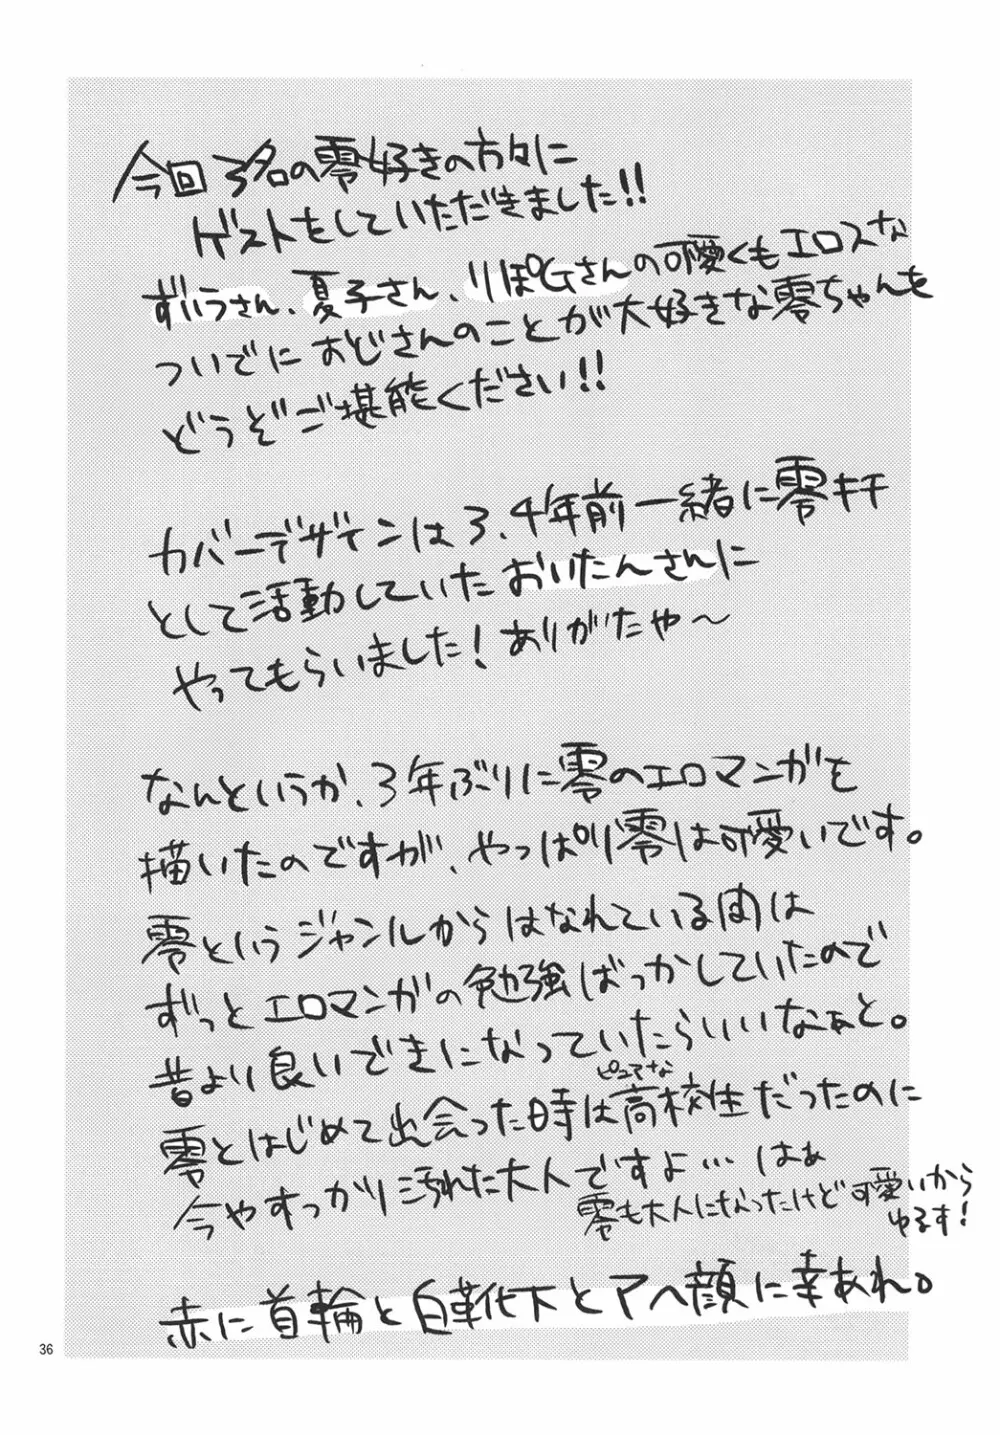 今回3名の零好きの方々に
ゲストをしていただきました!!
ずいうさん、夏子さん、りぽGさんの可愛くもエロスな
ついでにおじさんのことが大好きな零ちゃんを
どうぞご堪能ください!!
カバーデザインは3、4年前一緒に零キチ
として活動していたおいたんさんに
やってもらいました!ありがたや〜
なんというか、3年ぶりに零のエロマンガを
描いたのですが、やっぱり零は可愛いです。
零というジャンルからはなれている間は
ずっとエロマンガの勉強ばっかしていたので
昔より良いできになっていたらいいなぁと。
ピュアな
零とはじめて出会った時は高校生だったのに
今やすっかり汚れた大人ですよ…はぁ
零も大人になったけど可愛いから
ゆるす!
赤に首輪と白靴下とアヘ顔に幸あれ。
36